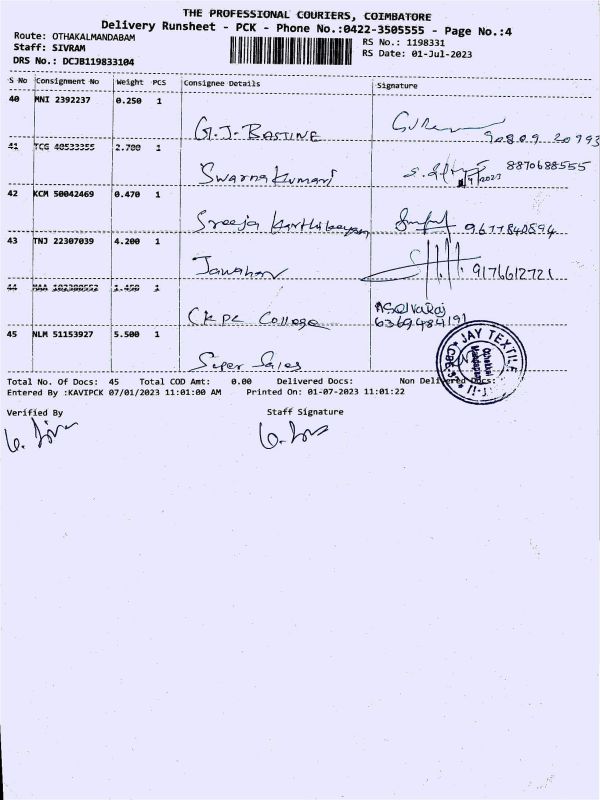 THE PROFESSIONAL COURIERS, COIMBATORE
Delivery Runsheet - PCK - Phone No.:0422-3505555 - Page No.:4
Route: OTHAKALMANDABAM
RS No.: 1198331
Staff: SIVRAM
RS Date: 01-Jul-2023
DRS No.: DCJB119833104
S No Consignment No Weight PCS Consignee Details Signature
40 MNI 2392237 0.250 1
G.J. BASTINE 90809 20793
41 TCG 40533355 2.700 1
Swarna Kumari 8870688555
42 KCM 50042469 0.470 1
Sreeja Karthikeyan 9677840594
43 TNJ 22307039 4.200 1
Jawahar 9176612721
44 MAA 102300552 1.450 1
CKPC College A Selvaraj
6369484191
45 NLM 51153927 5.500 1
Super Sales
JAY TEXTILE
Total No. Of Docs: 45 Total COD Amt: 0.00 Delivered Docs: Non Delivered Docs:
Entered By :KAVIPCK 07/01/2023 11:01:00 AM Printed On: 01-07-2023 11:01:22
Verified By Staff Signature